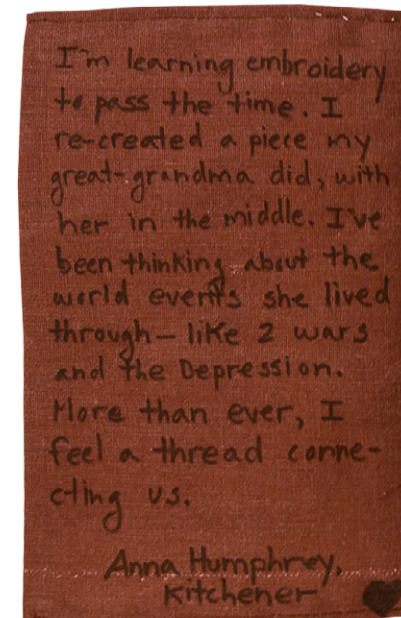 I'm learning embroidery
to pass the time. I
re-created a piece my
great-grandma did, with
her in the middle. I've
been thinking about the
world events she lived
through – like 2 wars
and the Depression.
More than ever, I
feel a thread conne-
cting us.
Anna Humphrey,
Kitchener